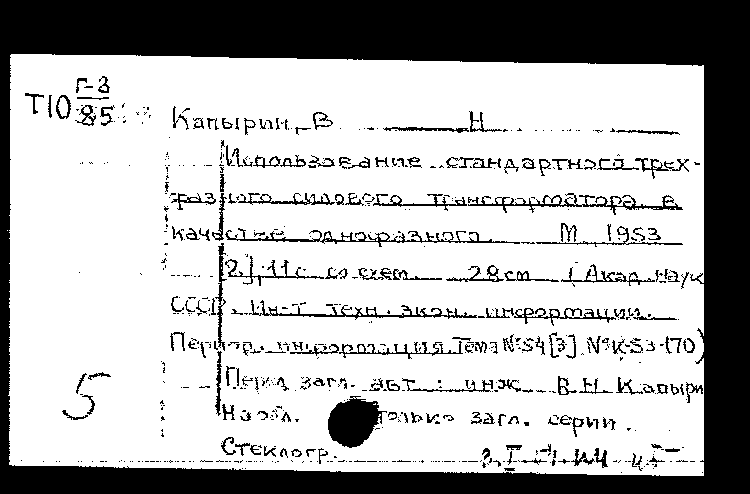 Г-3
Т10 85
Капырин, В Н
Использование стандартного трех-
фазного силового трансформатора в
качестве однофазного. М 1953
[2], 11 с со схем. 28 см (Акад. наук
СССР. Ин-т техн. экон. информации.
Период. информация. Тема № 54 [3] № К-53-170)
Перед загл. авт.: инж В. Н. Капырин
На обл. только загл. серии.
Стеклогр.
5